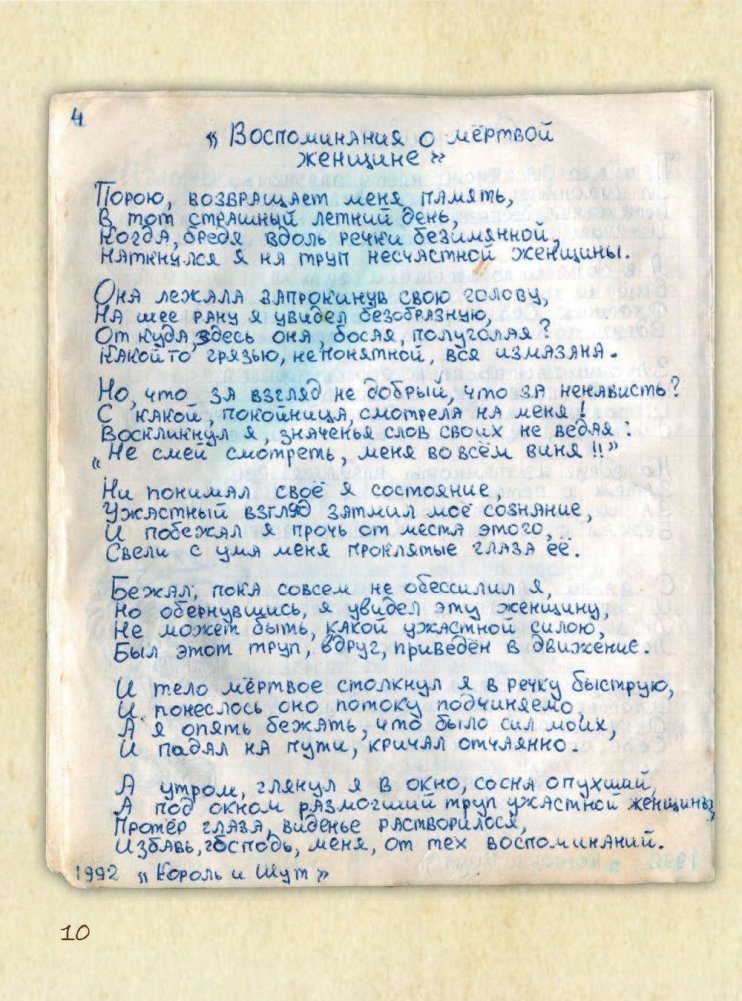 4
« Воспоминания о мёртвой
женщине »
Порою, возвращает меня память,
В тот страшный летний день,
Когда, бредя вдоль речки безимянной,
Наткнулся я на труп несчастной женщины.
Она лежала запрокинув свою голову,
На шее рану я увидел безобразную,
От куда, здесь она, босая, полуголая?
Какой то грязью, непонятной, вся измазана.
Но, что, за взгляд не добрый, что за ненависть?
С какой, покойница, смотрела на меня!
Воскликнул я, значенья слов своих не ведая:
„Не смей смотреть, меня во всём виня!!”
Ни понимал своё я состояние,
Ужастный взгляд затмил моё сознание,
И побежал я прочь от места этого,
Свели с ума меня проклятые глаза её.
Бежал, пока совсем не обессилил я,
Но обернувшись, я увидел эту женщину,
Не может быть, какой ужастной силою,
Был этот труп, вдруг, приведён в движение.
И тело мёртвое столкнул я в речку быструю,
И понеслось оно потоку подчиняемо,
А я опять бежать, что было сил моих,
И падал на пути, кричал отчаянно.
А утром, глянул я в окно, со сна опухший,
А под окном размогший труп ужастной женщины,
Протёр глаза, виденье растворилося,
Избавь, господь, меня, от тех воспоминаний.
1992 « Король и Шут »
10